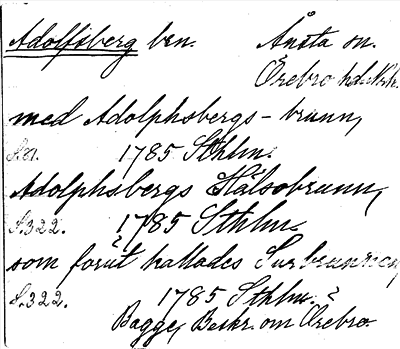 Adolfsberg ben. Ånsta sn.
Örebro hd. Nrk.
med Adolphsbergs-brunn,
S. 21. 1785 Sthlm.
Adolphsbergs Hälsobrunn,
S. 322. 1785 Sthlm.
som förut kallades Surbrunnen,
S. 322. 1785 Sthlm.
Bagge, Beskr. om Örebro